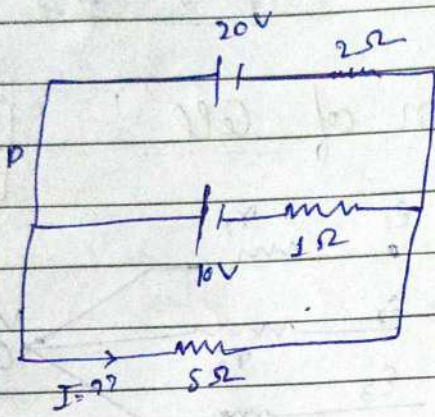 20V
2Ω
P
1Ω
10V
I=??
5Ω